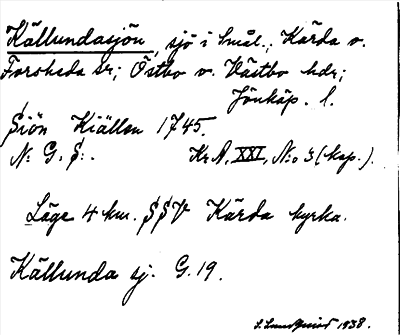 Källundasjön, sjö i Smål.; Kärda o.
Forsheda sr; Östbo o. Västbo hdr;
Jönköp. l.
Siön Kiällen 1745.
N: G. S:. Kr.A, XXI, N:o 3 (kop.).
Läge 4 km. SSV Kärda kyrka.
Källunda sj. G. 19.
1938.